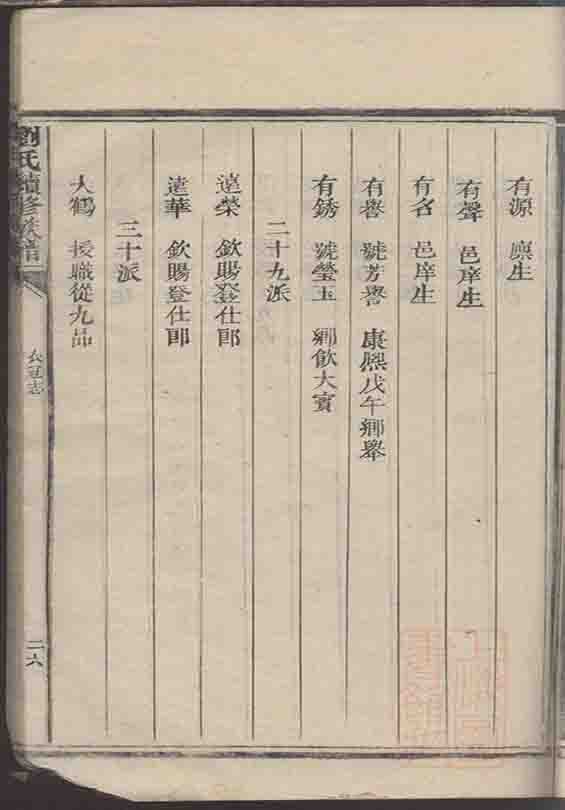 有源 廩生
有聲 邑庠生
有名 邑庠生
有譽 號芳譽 康熙戊午鄉舉
有銹 號瑩玉 鄉飲大賓
二十九派
遠榮 欽賜登仕郎
遠華 欽賜登仕郎
三十派
大鶴 授職從九品
劉氏續修族譜
衣冠志
二六